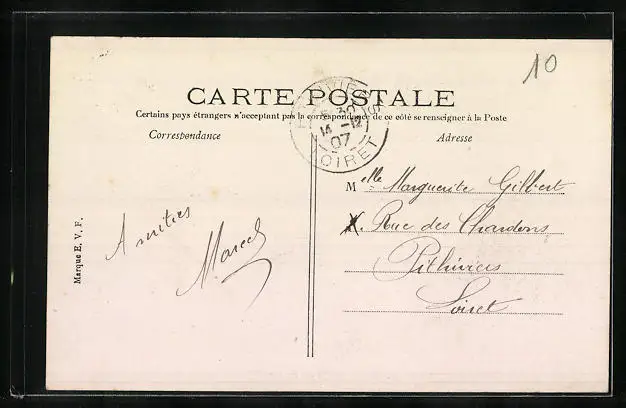 10
CARTE POSTALE
Certains pays étrangers n'acceptant pas la correspondance de ce côté se renseigner à la Poste
Correspondance
Adresse
14 -12
07
LOIRET
Melle Marguerite Gilbert
Rue des Chardons
Pithiviers
Loiret
Amitiés
Marcel
Marque E. V. F.